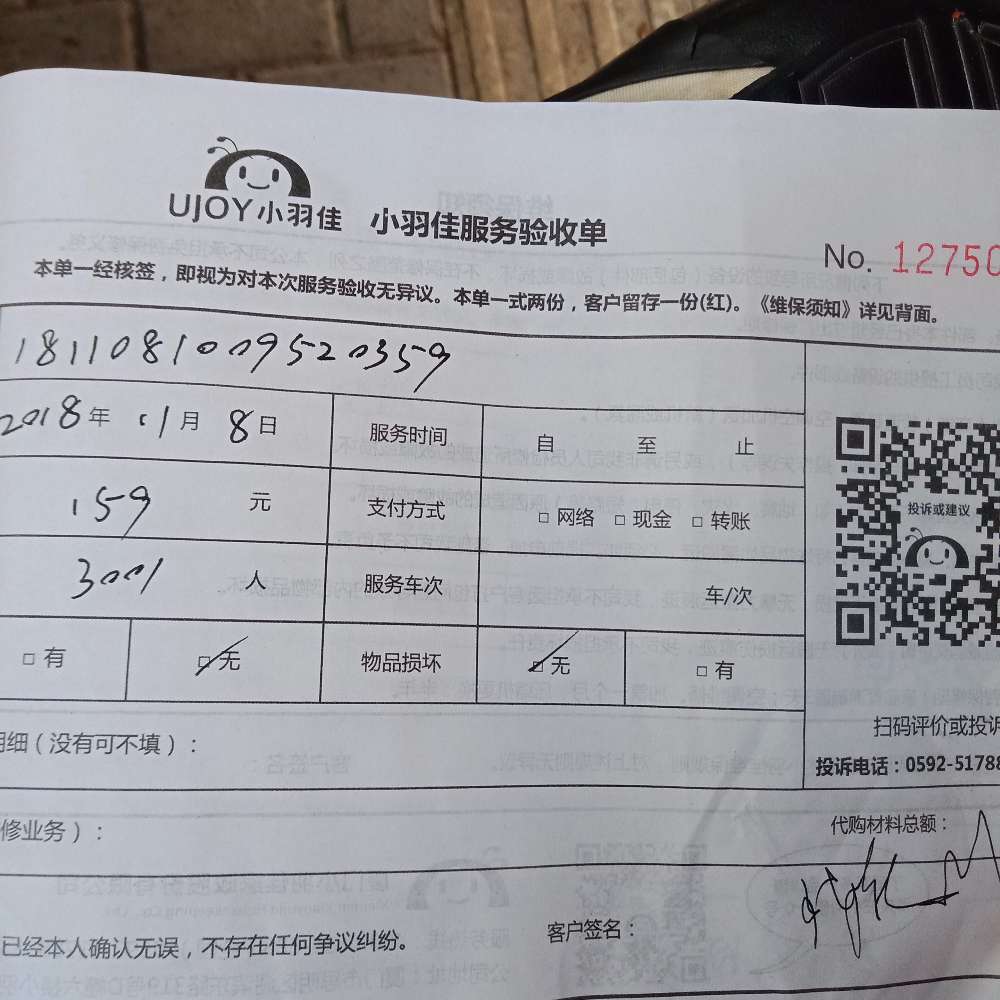 UJOY小羽佳 小羽佳服务验收单
No. 12750
本单一经核签，即视为对本次服务验收无异议。本单一式两份，客户留存一份(红)。《维保须知》详见背面。
1811081009520359
2018年 11月 8日 服务时间 自 至 止
159 元 支付方式 □ 网络 □ 现金 □ 转账
投诉或建议
3001 人 服务车次 车/次
□ 有 □ 无 物品损坏 □ 无 □ 有
明细（没有可不填）：
扫码评价或投诉
投诉电话：0592-51788
修业务）：
代购材料总额：
客户签名：
已经本人确认无误，不存在任何争议纠纷。